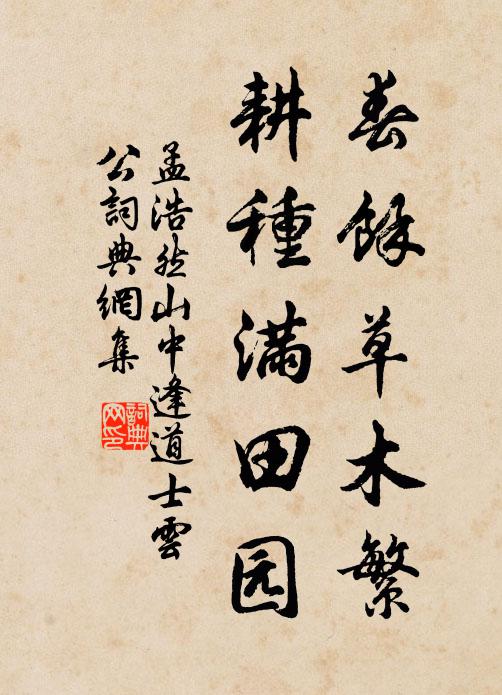 春餘草木繁
耕種滿田园
孟浩然山中逢道士雲
公詞典網集
詞典
网印